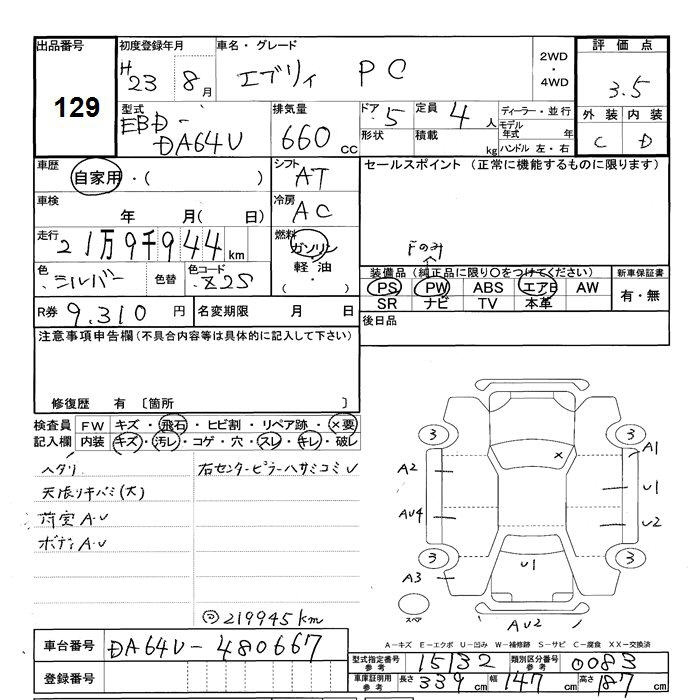 出品番号
129
初度登録年月
H 23 8月
車名・グレード
エブリィ PC
2WD
・
4WD
評価点
3.5
外装 内装
C D
型式
EBD-
DA64V
排気量
660 cc
ドア 5
定員 4 人
形状
積載 kg
ディーラー・並行
モデル年式 年
ハンドル 左・右
車歴
自家用・( )
シフト AT
車検
年 月( 日)
冷房 AC
走行
21万9千944 km
燃料
ガソリン
・軽油・
( )
色 シルバー
色替
色コード Z2S
R券 9,310 円
名変期限 月 日
セールスポイント (正常に機能するものに限ります)
Fのみ
装備品(純正品に限り○をつけてください)
PS PW ABS エアB AW
SR ナビ TV 本革
新車保証書
有・無
後日品
注意事項申告欄(不具合内容等は具体的に記入して下さい)
修復歴 有 〔箇所 〕
検査員 FW キズ・飛石・ヒビ割・リペア跡・×要
記入欄 内装 キズ・汚レ・コゲ・穴・スレ・キレ・破レ
ヘタリ
右センターピラーハサミコミU
天張リキバミ(大)
荷室A.U
ボディA.U
219945km
3 3
A1
A2
×
U1
AU4
U2
3 3
U1
A3
スペア
AU2
A-キズ E-エクボ U-凹み W-補修跡 S-サビ C-腐食 XX-交換済
車台番号 DA64V-480667
登録番号
型式指定番号 参考 15132
類別区分番号 参考 0083
車庫証明用 参考 長さ 339 cm 幅 147 cm 高さ 187 cm